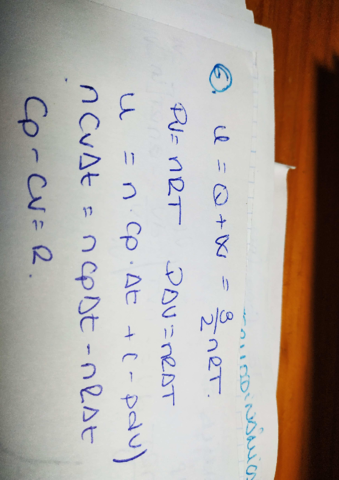 6. U = Q + W = 3/2 nRT.
PV = nRT PΔV = nRΔT
U = n · Cp · Δt + (- pdV)
nCvΔt = nCpΔt - nRΔt
Cp - Cv = R.